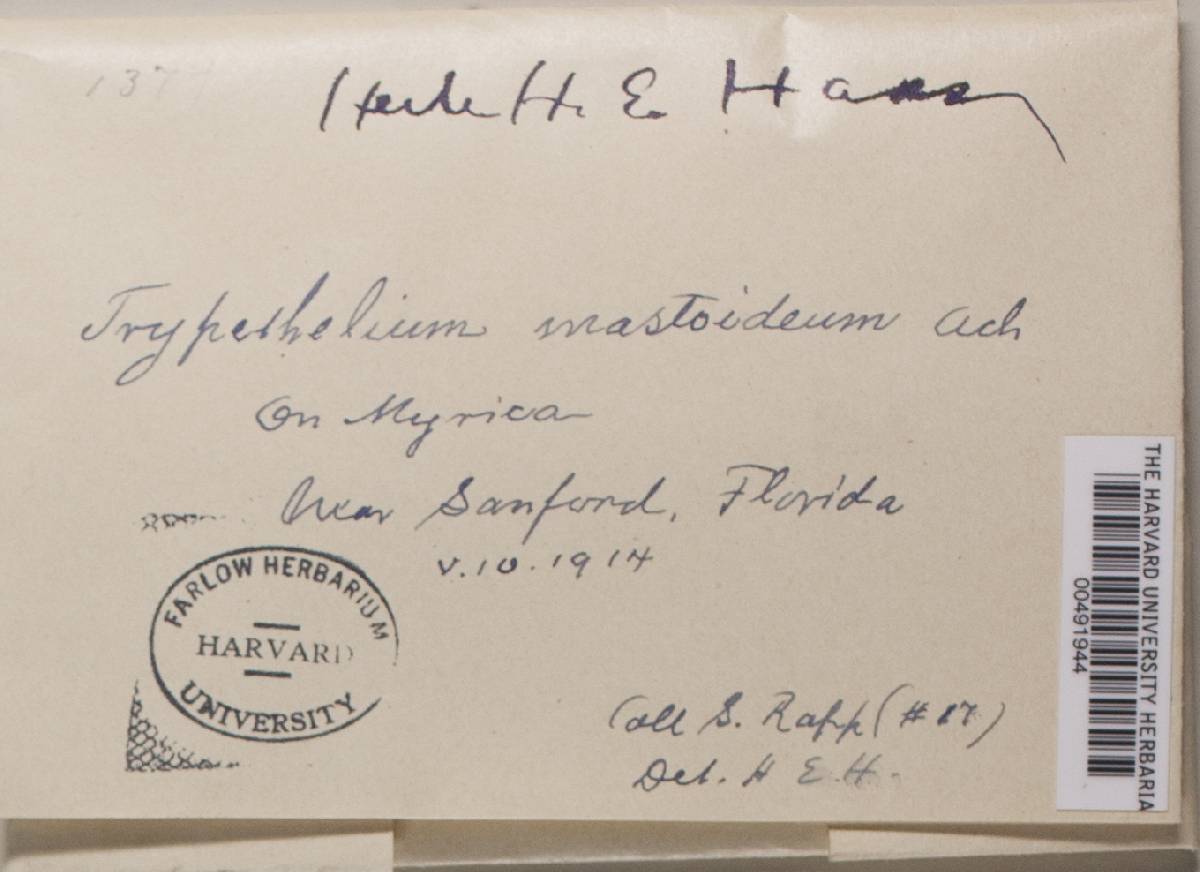 137
Herb H. E. Hasse
Trypethelium mastoideum Ach
On Myrica
Near Sanford, Florida
V.10.1914
FARLOW HERBARIUM
HARVARD
UNIVERSITY
Coll S. Rapp (#17)
Det. H E.H.
THE HARVARD UNIVERSITY HERBARIA
00491944